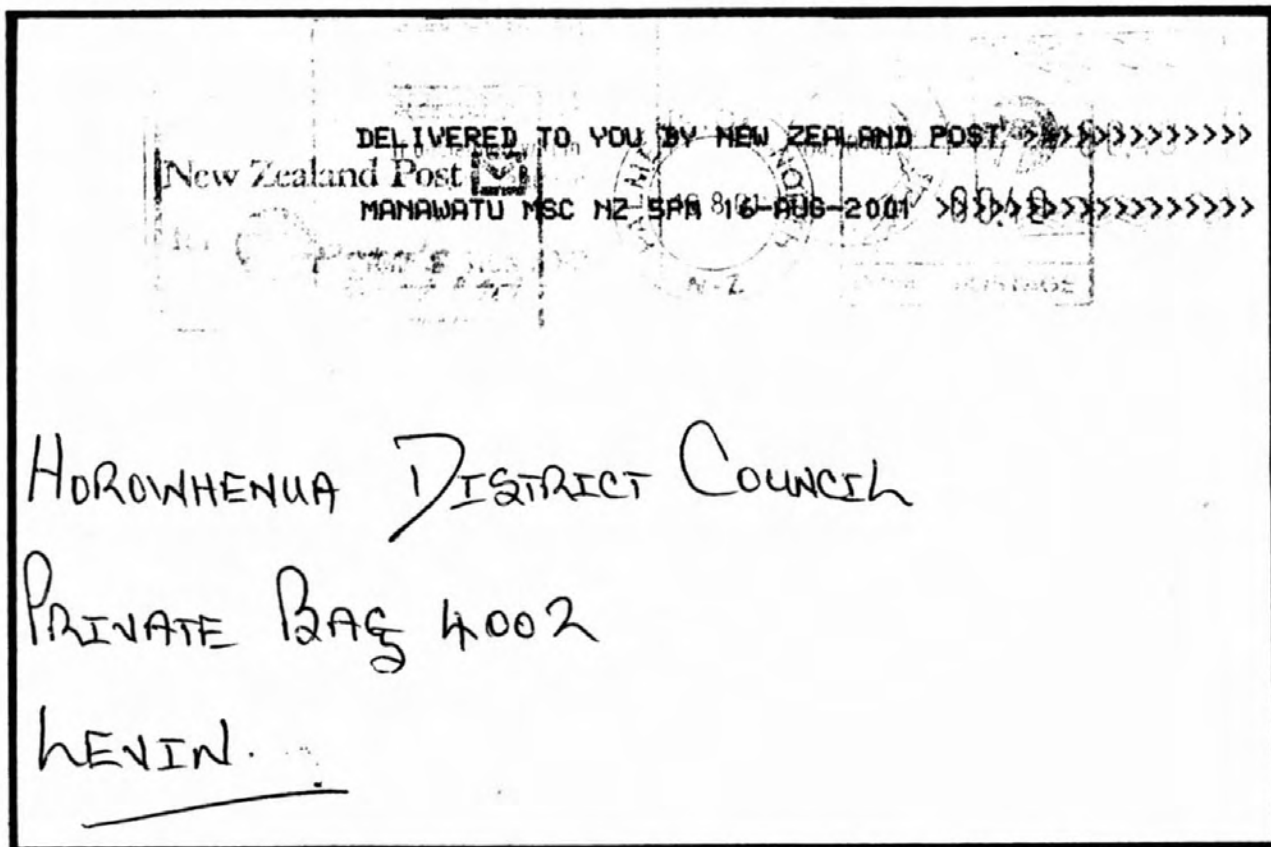 DELIVERED TO YOU BY NEW ZEALAND POST >>>>>>>>>>>>>
New Zealand Post
MANAWATU MSC NZ 5PM 16-AUG-2001 >>>>>>>>>>>>>>>>
N.Z.
POSTAGE
HOROWHENUA DISTRICT COUNCIL
PRIVATE BAG 4002
LEVIN.